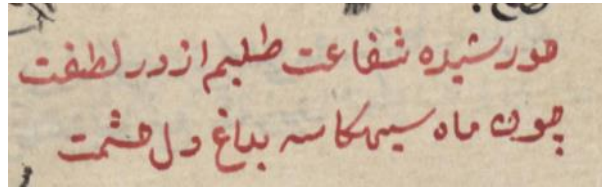 خورشیده شفاعت طلبم از در لطفت
چون ماه سیهکاسه بداغ دل حشمت